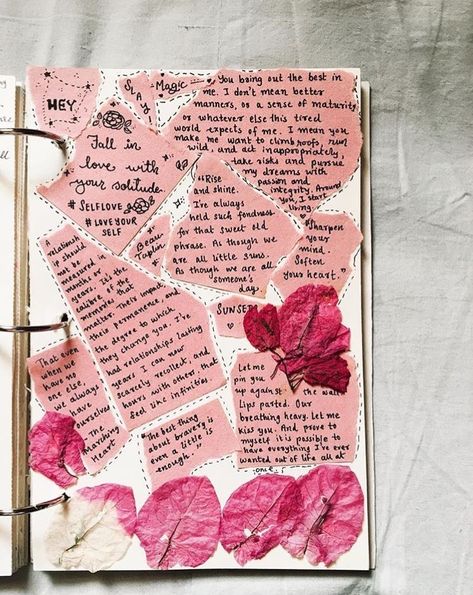 HEY,
SLAY
Magic
Fall in
love with
your solitude.
#SELFLOVE
#LOVE YOUR
SELF
You bring out the best in
me. I don't mean better
manners, or a sense of maturity
or whatever else this tired
world expects of me. I mean you
make me want to climb roofs, run
wild, and act inappropriately,
take risks and pursue
my dreams with
passion and
integrity. Around
you, I start
living.
"Rise
and shine.
I've always
held such fondness
for that sweet old
phrase. As though we
are all little suns.
As though we are all
someone's
day.
"Sharpen
your
mind.
Soften
your heart."
Beau
Taplin
A
relationship
should
not be
measured in
months or
years. It's the
calibre of the
memories that
matter. Their impact,
their permanence, and
the degree to which
they change you. I've
had relationships lasting
years I can now
scarcely recollect, and
hours with others, that
feel like infinities
SUNSET
That even
when we
have no
one else,
we always
have
ourselves
one
Marching
Heart
Let me
pin you
up against the wall
Lips parted. Our
breathing heavy. Let me
kiss you. And prove to
myself it is possible to
have everything I've ever
wanted out of life all at
once.
"The best thing
about bravery is
even a little is
enough.